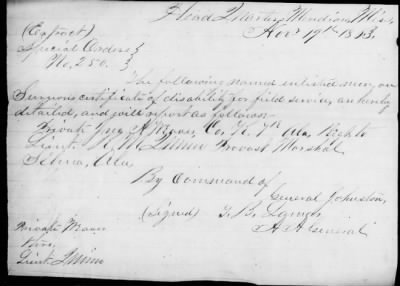 Head Quarters Meridian Miss
Nov 19th 1863.
(Extract)
Special Orders
No. 250.
The following named enlisted men, on
Surgeons certificate of disability for field service, are hereby
detailed, and will report as follows:
Private A Co. 7th Ala Regt to
Lieut. Provost Marshal
Selma, Ala
By Command of
General Johnston,
(signed) B.
A A General
Private
thro,
Lieut